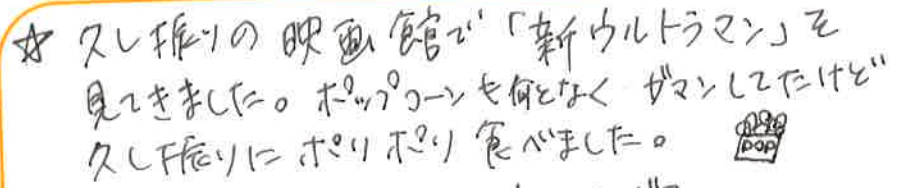 ☆ 久し振りの映画館で「新ウルトラマン」を
見てきました。ポップコーンも何となくガマンしてたけど
久し振りにポリポリ食べました。
POP